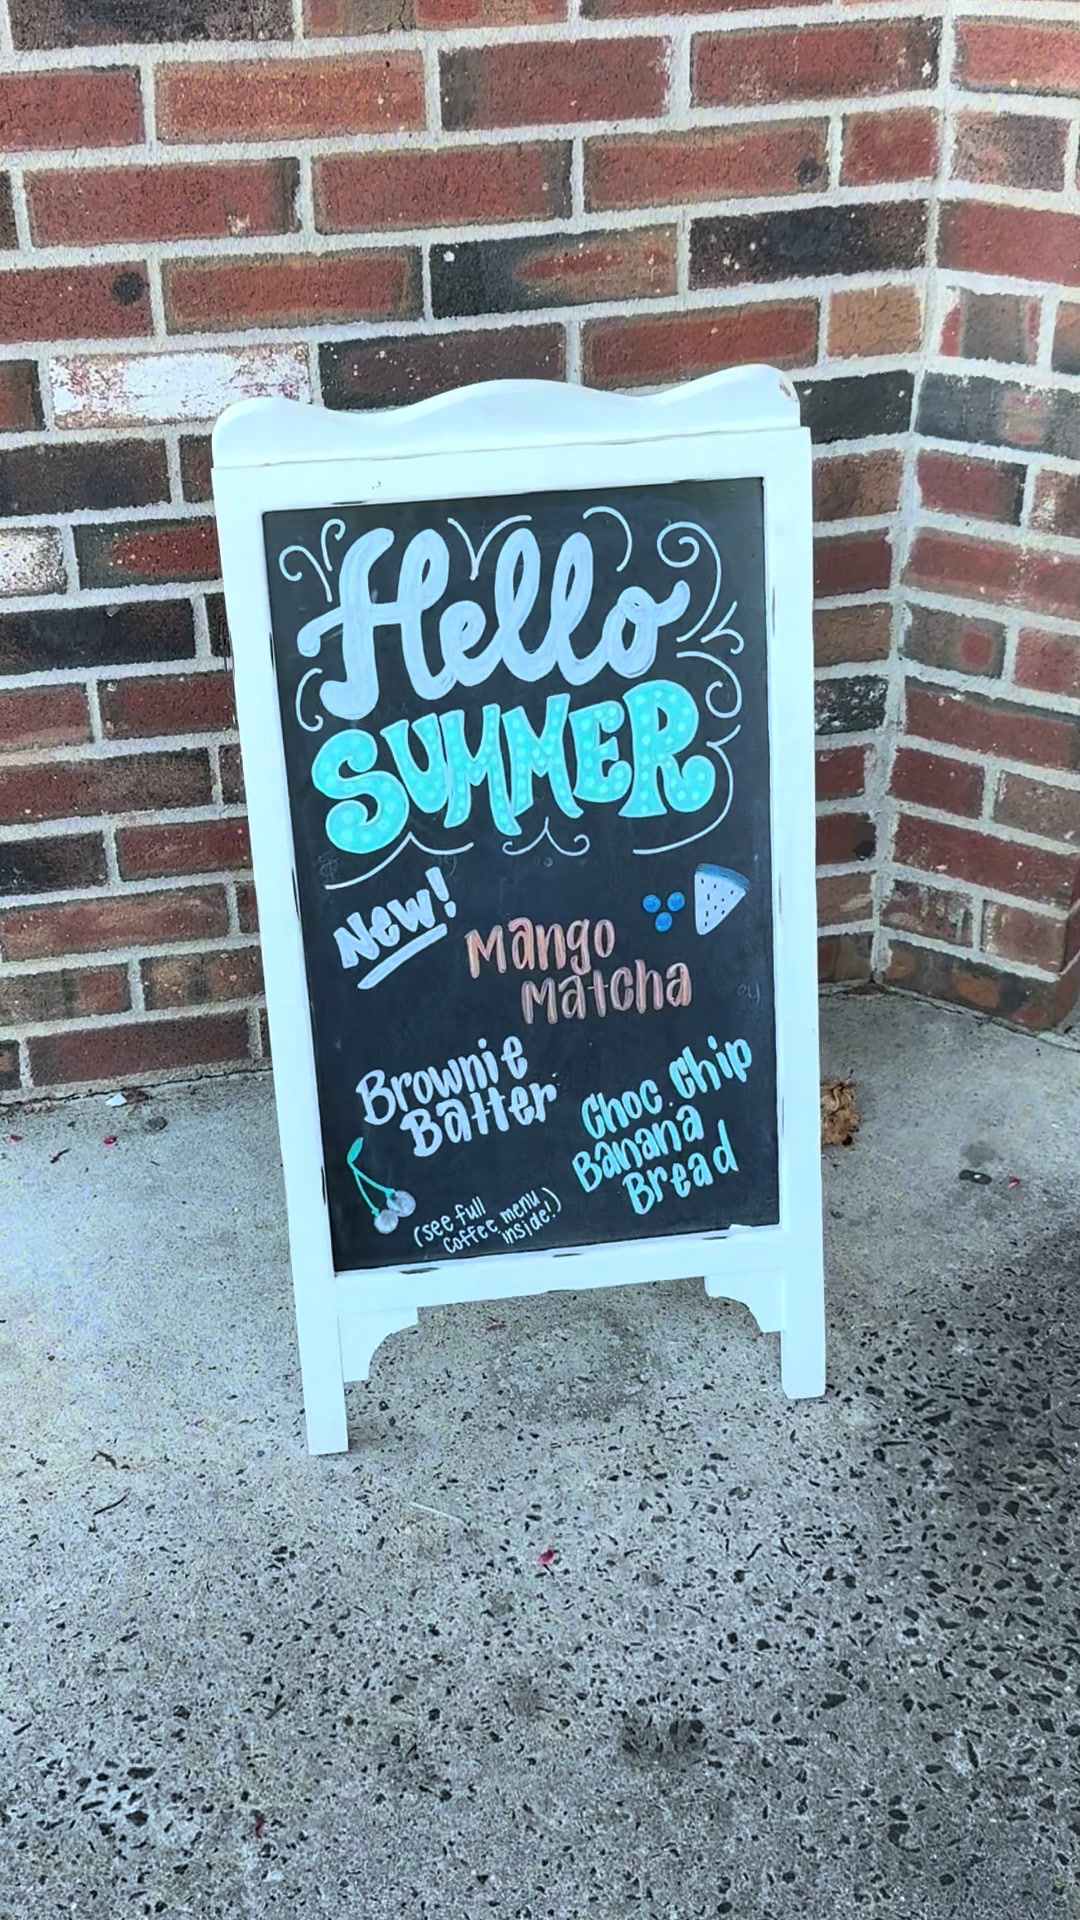 Hello
SUMMER
New!
Mango
Matcha
Brownie
Batter
Choc Chip
Banana
Bread
(see full
coffee menu
inside!)